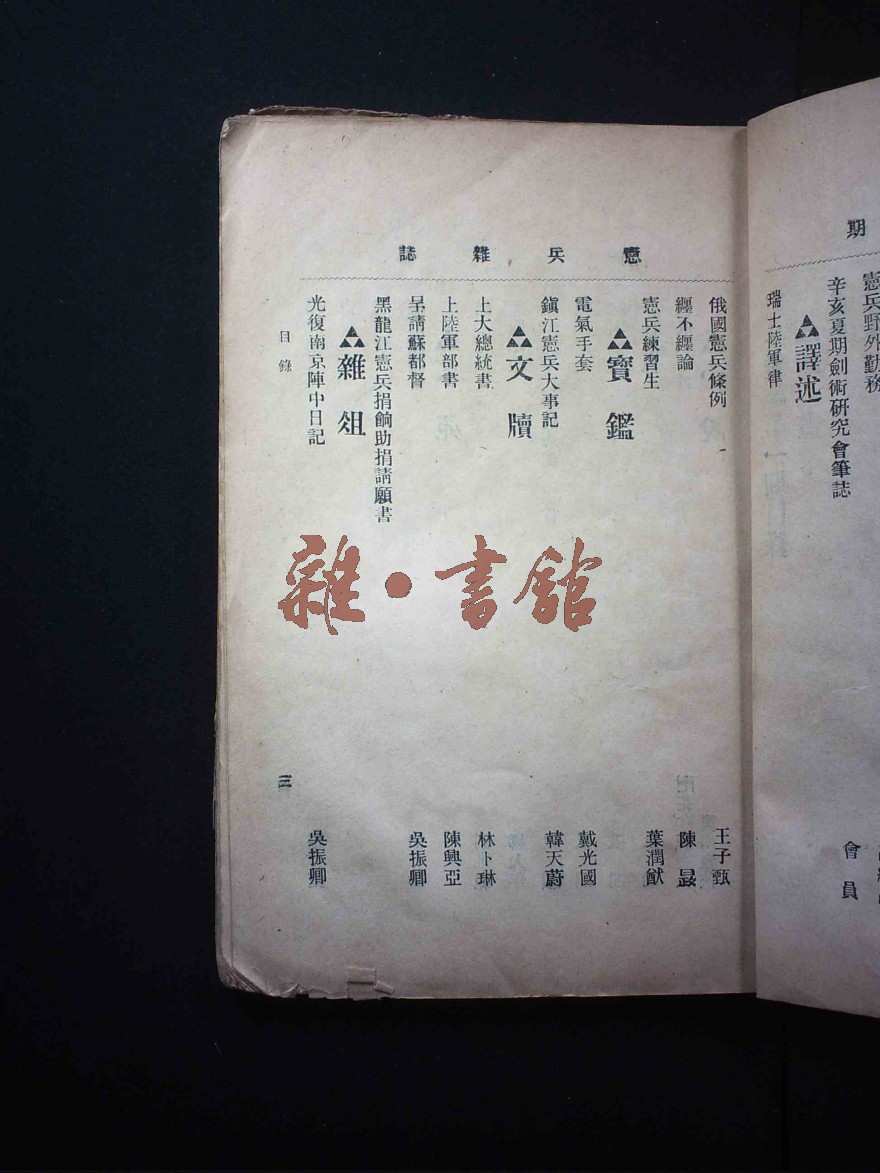 期
憲兵野外勤務
辛亥夏期劍術研究會筆誌
會員
譯述
瑞士陸軍律
憲兵雜誌
俄國憲兵條例
王子甄
纏不纏論
陳晸
憲兵練習生
葉潤猷
寶鑑
電氣手套
戴光國
鎭江憲兵大事記
韓天蔚
文牘
上大總統書
林卜琳
上陸軍部書
陳興亞
呈請蘇都督
吳振卿
黑龍江憲兵捐餉助捐請願書
雜俎
光復南京陣中日記
吳振卿
目錄
三
雜·書館